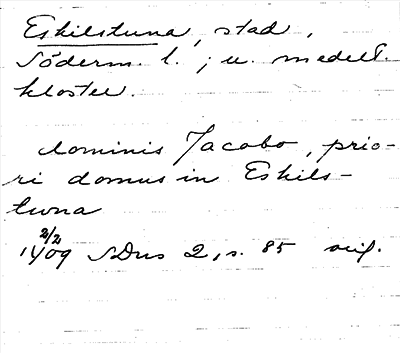 Eskilstuna, stad,
Söderm. l.; u. medelt.
kloster.
dominis Jacobo, prio-
ri domus in Eskils-
tuna
2/2
1409 SDns 2, s. 85 orig.